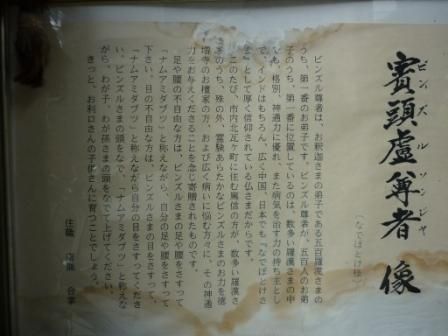 ビンズルソンジャ
賓頭盧尊者 像
(なでほとけ様)
ビンズル尊者は、お釈迦さまの弟子である五百羅漢さまの
うち、第一番のお弟子です。ビンズル尊者が、五百人のお弟
子のうち、第一番に位置しているのは、数多い羅漢さまの中
でも、格別、神通力に優れ、また病気を治す力の持ち主とし
て、インドはもちろん、広く中国、日本でも『なでぼとけさ
ま』として厚く信仰されている仏さまだからです。
このたび、市内北 ヶ町に住む篤信の方が、数多い羅漢さ
まのうち、殊の外、霊験あらたかなビンズルさまのお力を
増寺のお檀家の方、および広く病いに悩む方々に、その神通
力をお与えくださることを念じ寄贈されたものです。
足や腰の不自由な方は、ビンズルさまの足や腰をさすって
「ナムアミダブツ」と称えながら、自分の足や腰をさすって
下さい。目の不自由な方は、ビンズルさまの目をさすって、
「ナムアミダブツ」と称えながら自分の目をさすってくださ
い。ビンズルさまの頭をなで、「ナムアミダブツ」と称えな
がら、わが子、わが孫さまの頭をなでて上げてください。
きっと、お利口さんの子供さんに育つことでしょう。
住職 合掌